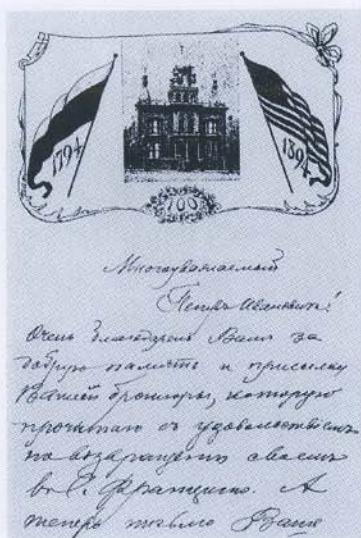 1794
1894
100
Многоуважаемый
Петръ Ивановичъ!
Очень благодаренъ Вамъ за
добрую память и присылку
Вашей брошюры, которую
прочитаю съ удовольствіемъ
по возвращеніи своемъ
въ С. Франциско. А
теперь только Ваше